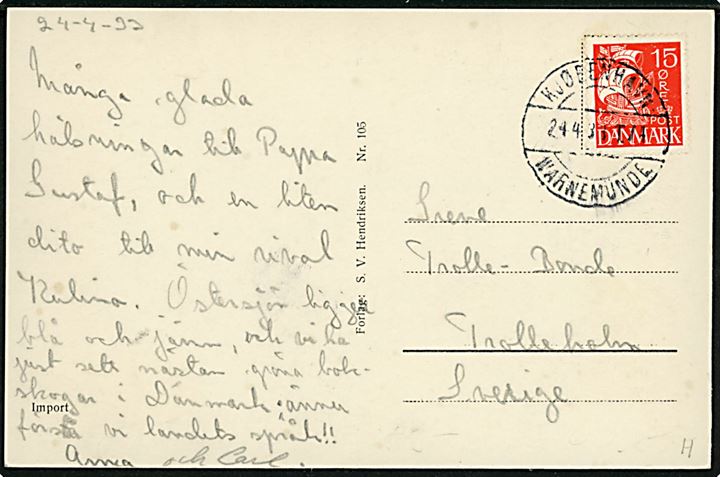 24-4-33
Många glada
hälsningar till Pappa
Gustaf, och en liten
dito till min rival
Östersjön ligger
blå och jämn, och vi ha
just sett nästan gröna bok-
skogar i Danmark, ännu
förstå vi landets språk!!
Anna och Carl.
Import
Forlag: S. V. Hendriksen. Nr. 105
15
ØRE
POST
DANMARK
KJØBENHAVN
24.4.3
WARNEMÜNDE
Trolle-Bonde
Trolleholm
Sverige
H